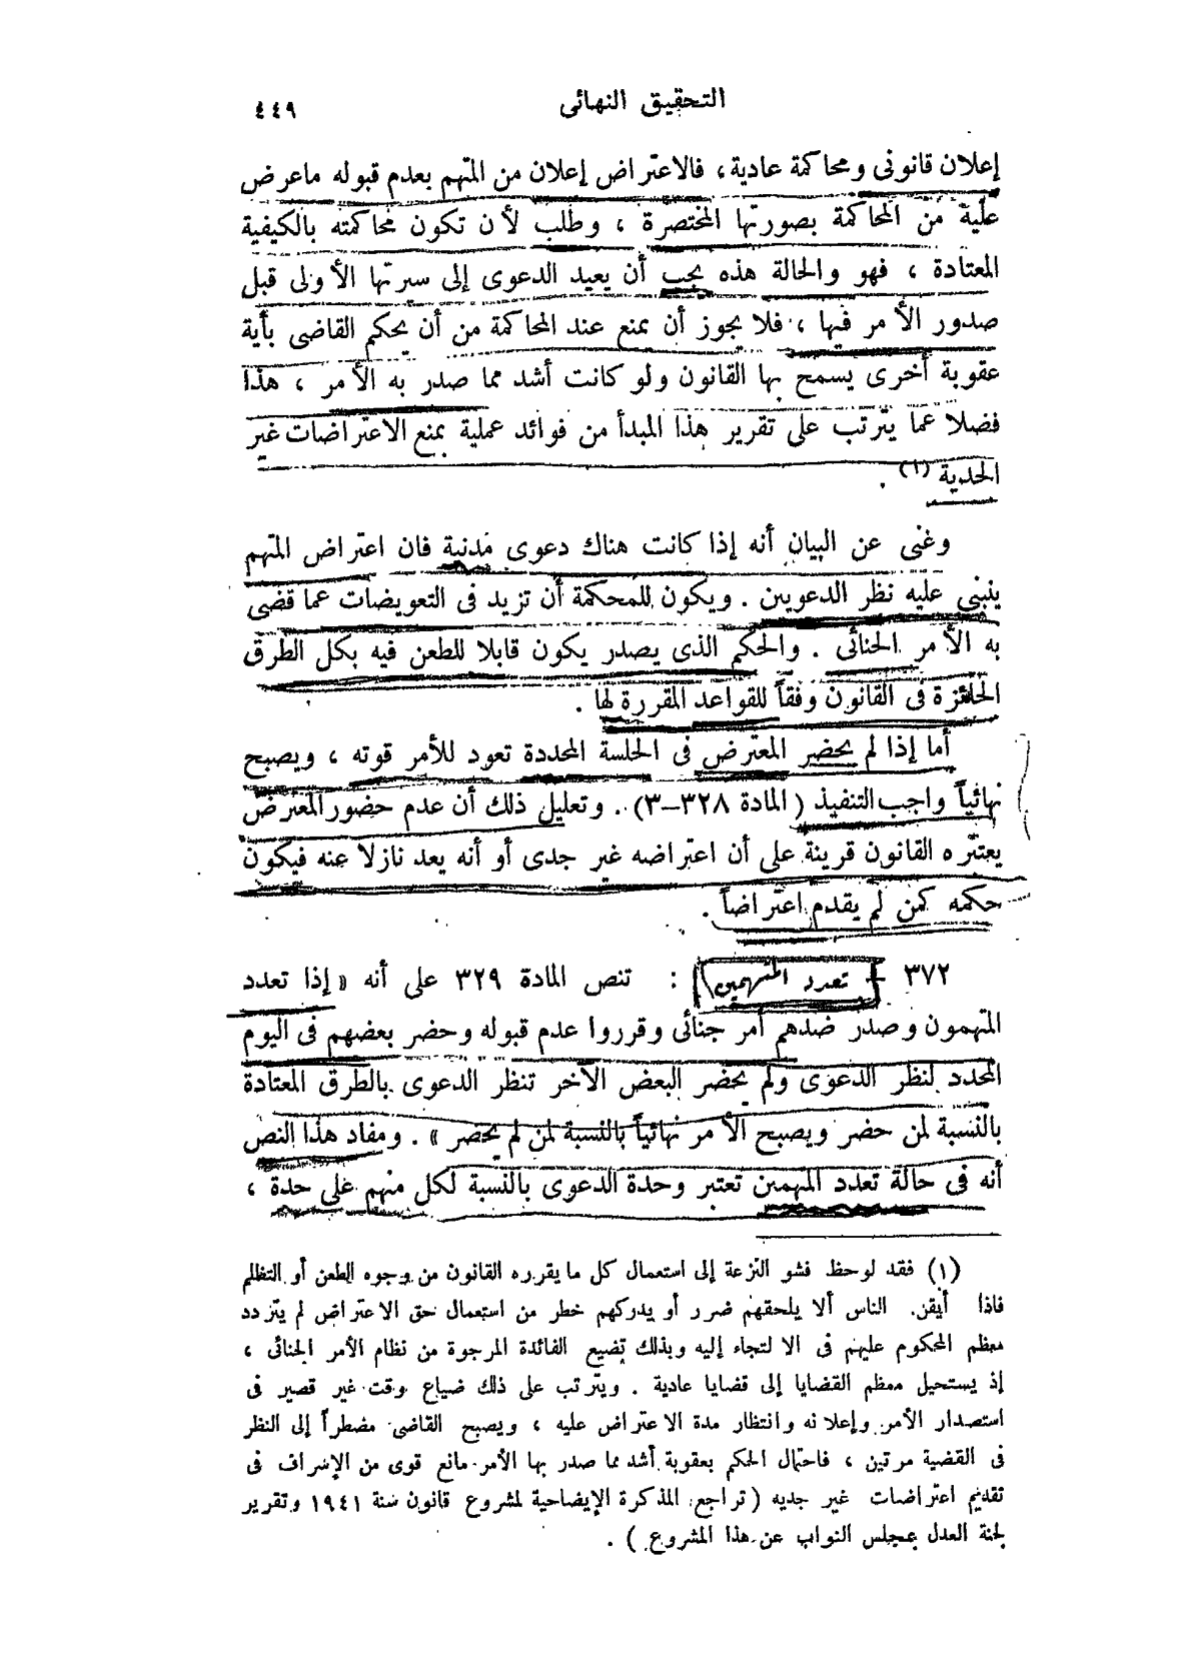 التحقيق النهائى ٤٤٩
إعلان قانونى ومحاكمة عادية ، فالاعتراض إعلان من المتهم بعدم قبوله ماعرض
عليه من المحاكمة بصورتها المختصرة ، وطلب لأن تكون محاكمته بالكيفية
المعتادة ، فهو والحالة هذه يجب أن يعيد الدعوى إلى سيرتها الأولى قبل
صدور الأمر فيها ، فلا يجوز أن يمنع عند المحاكمة من أن يحكم القاضى بأية
عقوبة أخرى يسمح بها القانون ولو كانت أشد مما صدر به الأمر ، هذا
فضلا عما يترتب على تقرير هذا المبدأ من فوائد عملية بمنع الاعتراضات غير
الجدية (١) .
وغنى عن البيان أنه إذا كانت هناك دعوى مدنية فان اعتراض المتهم
ينبنى عليه نظر الدعويين . ويكون للمحكمة أن تزيد فى التعويضات عما قضى
به الأمر الجنائى . والحكم الذى يصدر يكون قابلا للطعن فيه بكل الطرق
الجائزة فى القانون وفقاً للقواعد المقررة لها .
أما إذا لم يحضر المعترض فى الجلسة المحددة تعود للأمر قوته ، ويصبح
نهائياً واجب التنفيذ (المادة ٣٢٨–٣) . وتعليل ذلك أن عدم حضور المعترض
يعتبره القانون قرينة على أن اعتراضه غير جدى أو أنه يعد نازلا عنه فيكون
حكمه كمن لم يقدم اعتراضاً .
٣٧٢ – تعدد المتهمين : تنص المادة ٣٢٩ على أنه « إذا تعدد
المتهمون وصدر ضدهم أمر جنائى وقرروا عدم قبوله وحضر بعضهم فى اليوم
المحدد لنظر الدعوى ولم يحضر البعض الآخر تنظر الدعوى بالطرق المعتادة
بالنسبة لمن حضر ويصبح الأمر نهائياً بالنسبة لمن لم يحضر » . ومفاد هذا النص
أنه فى حالة تعدد المتهمين تعتبر وحدة الدعوى بالنسبة لكل منهم على حدة ،
(١) فقد لوحظ فشو النزعة إلى استعمال كل ما يقرره القانون من وجوه الطعن أو التظلم
فاذا أيقن الناس ألا يلحقهم ضرر أو يدركهم خطر من استعمال حق الاعتراض لم يتردد
معظم المحكوم عليهم فى الالتجاء إليه وبذلك تضيع الفائدة المرجوة من نظام الأمر الجنائى ،
إذ يستحيل معظم القضايا إلى قضايا عادية . ويترتب على ذلك ضياع وقت غير قصير فى
استصدار الأمر وإعلانه وانتظار مدة الاعتراض عليه ، ويصبح القاضى مضطراً إلى النظر
فى القضية مرتين ، فاحتمال الحكم بعقوبة أشد مما صدر بها الأمر مانع قوى من الإسراف فى
تقديم اعتراضات غير جديه (تراجع المذكرة الإيضاحية لمشروع قانون سنة ١٩٤١ وتقرير
لجنة العدل بمجلس النواب عن هذا المشروع ) .